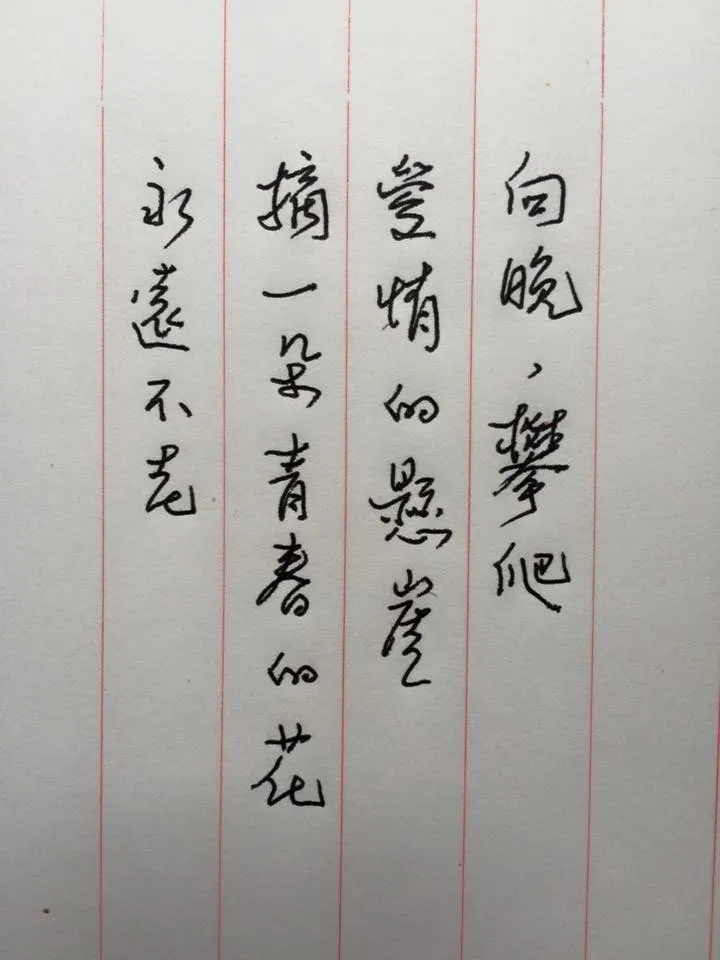 向晚、攀爬
愛情的懸崖
摘一朵青春的花
永遠不老